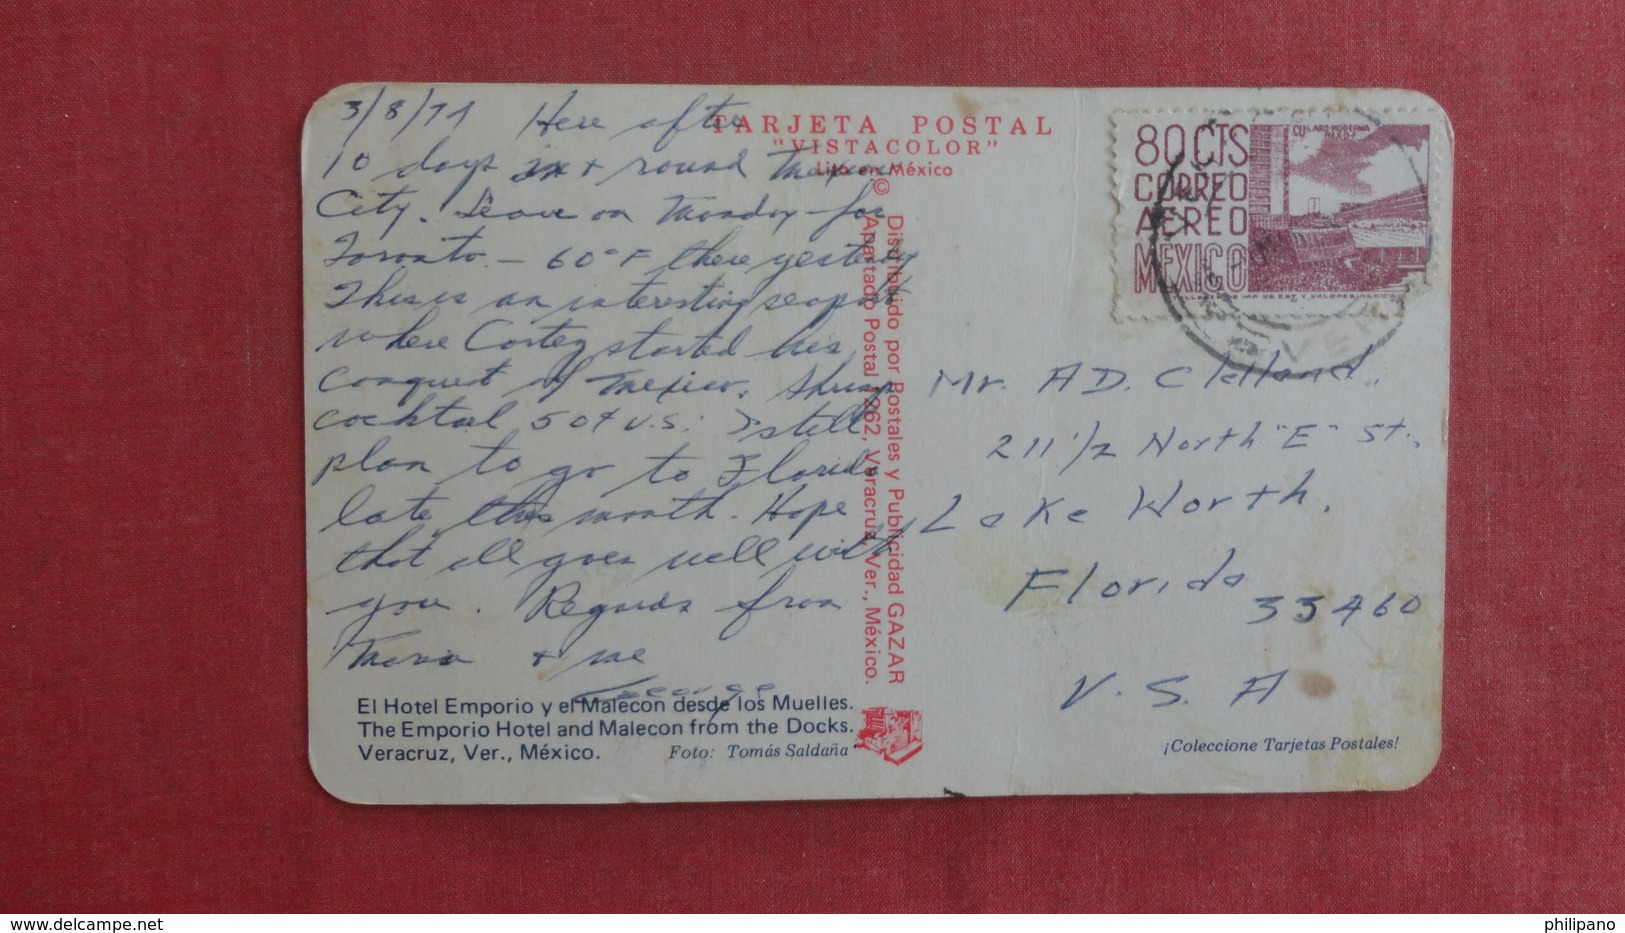 3/8/74 Here after
10 days in + round Mexico
City. Leave on Monday for
Toronto – 60°F there yesterday
This is an interesting seaport
where Cortez started his
conquest of Mexico. Shrimp
cocktail 50¢ U.S. I still
plan to go to Florida
late this month. Hope
that all goes well with
you. Regards from
+ me
George
TARJETA POSTAL
"VISTACOLOR"
Lito en México
©
Distribuido por Postales y Publicidad GAZAR
Apartado Postal 1262, Veracruz, Ver., México.
80 CTS
CORREO
AEREO
MEXICO
MODERNA
VER
Mr. A D. Clelland.
211 1/2 North "E" St.,
Lake Worth,
Florida
33460
U. S. A
El Hotel Emporio y el Malecon desde los Muelles.
The Emporio Hotel and Malecon from the Docks.
Veracruz, Ver., México.
Foto: Tomás Saldaña
¡Coleccione Tarjetas Postales!
http://www.delcampe.net
philipano